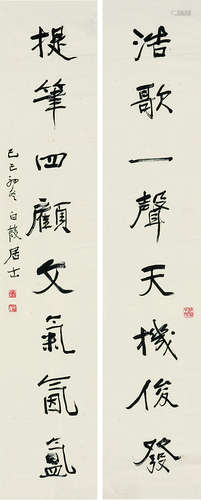 浩歌一聲天機俊發
提筆四顧文氣氤氳
己巳初冬白蕤居士